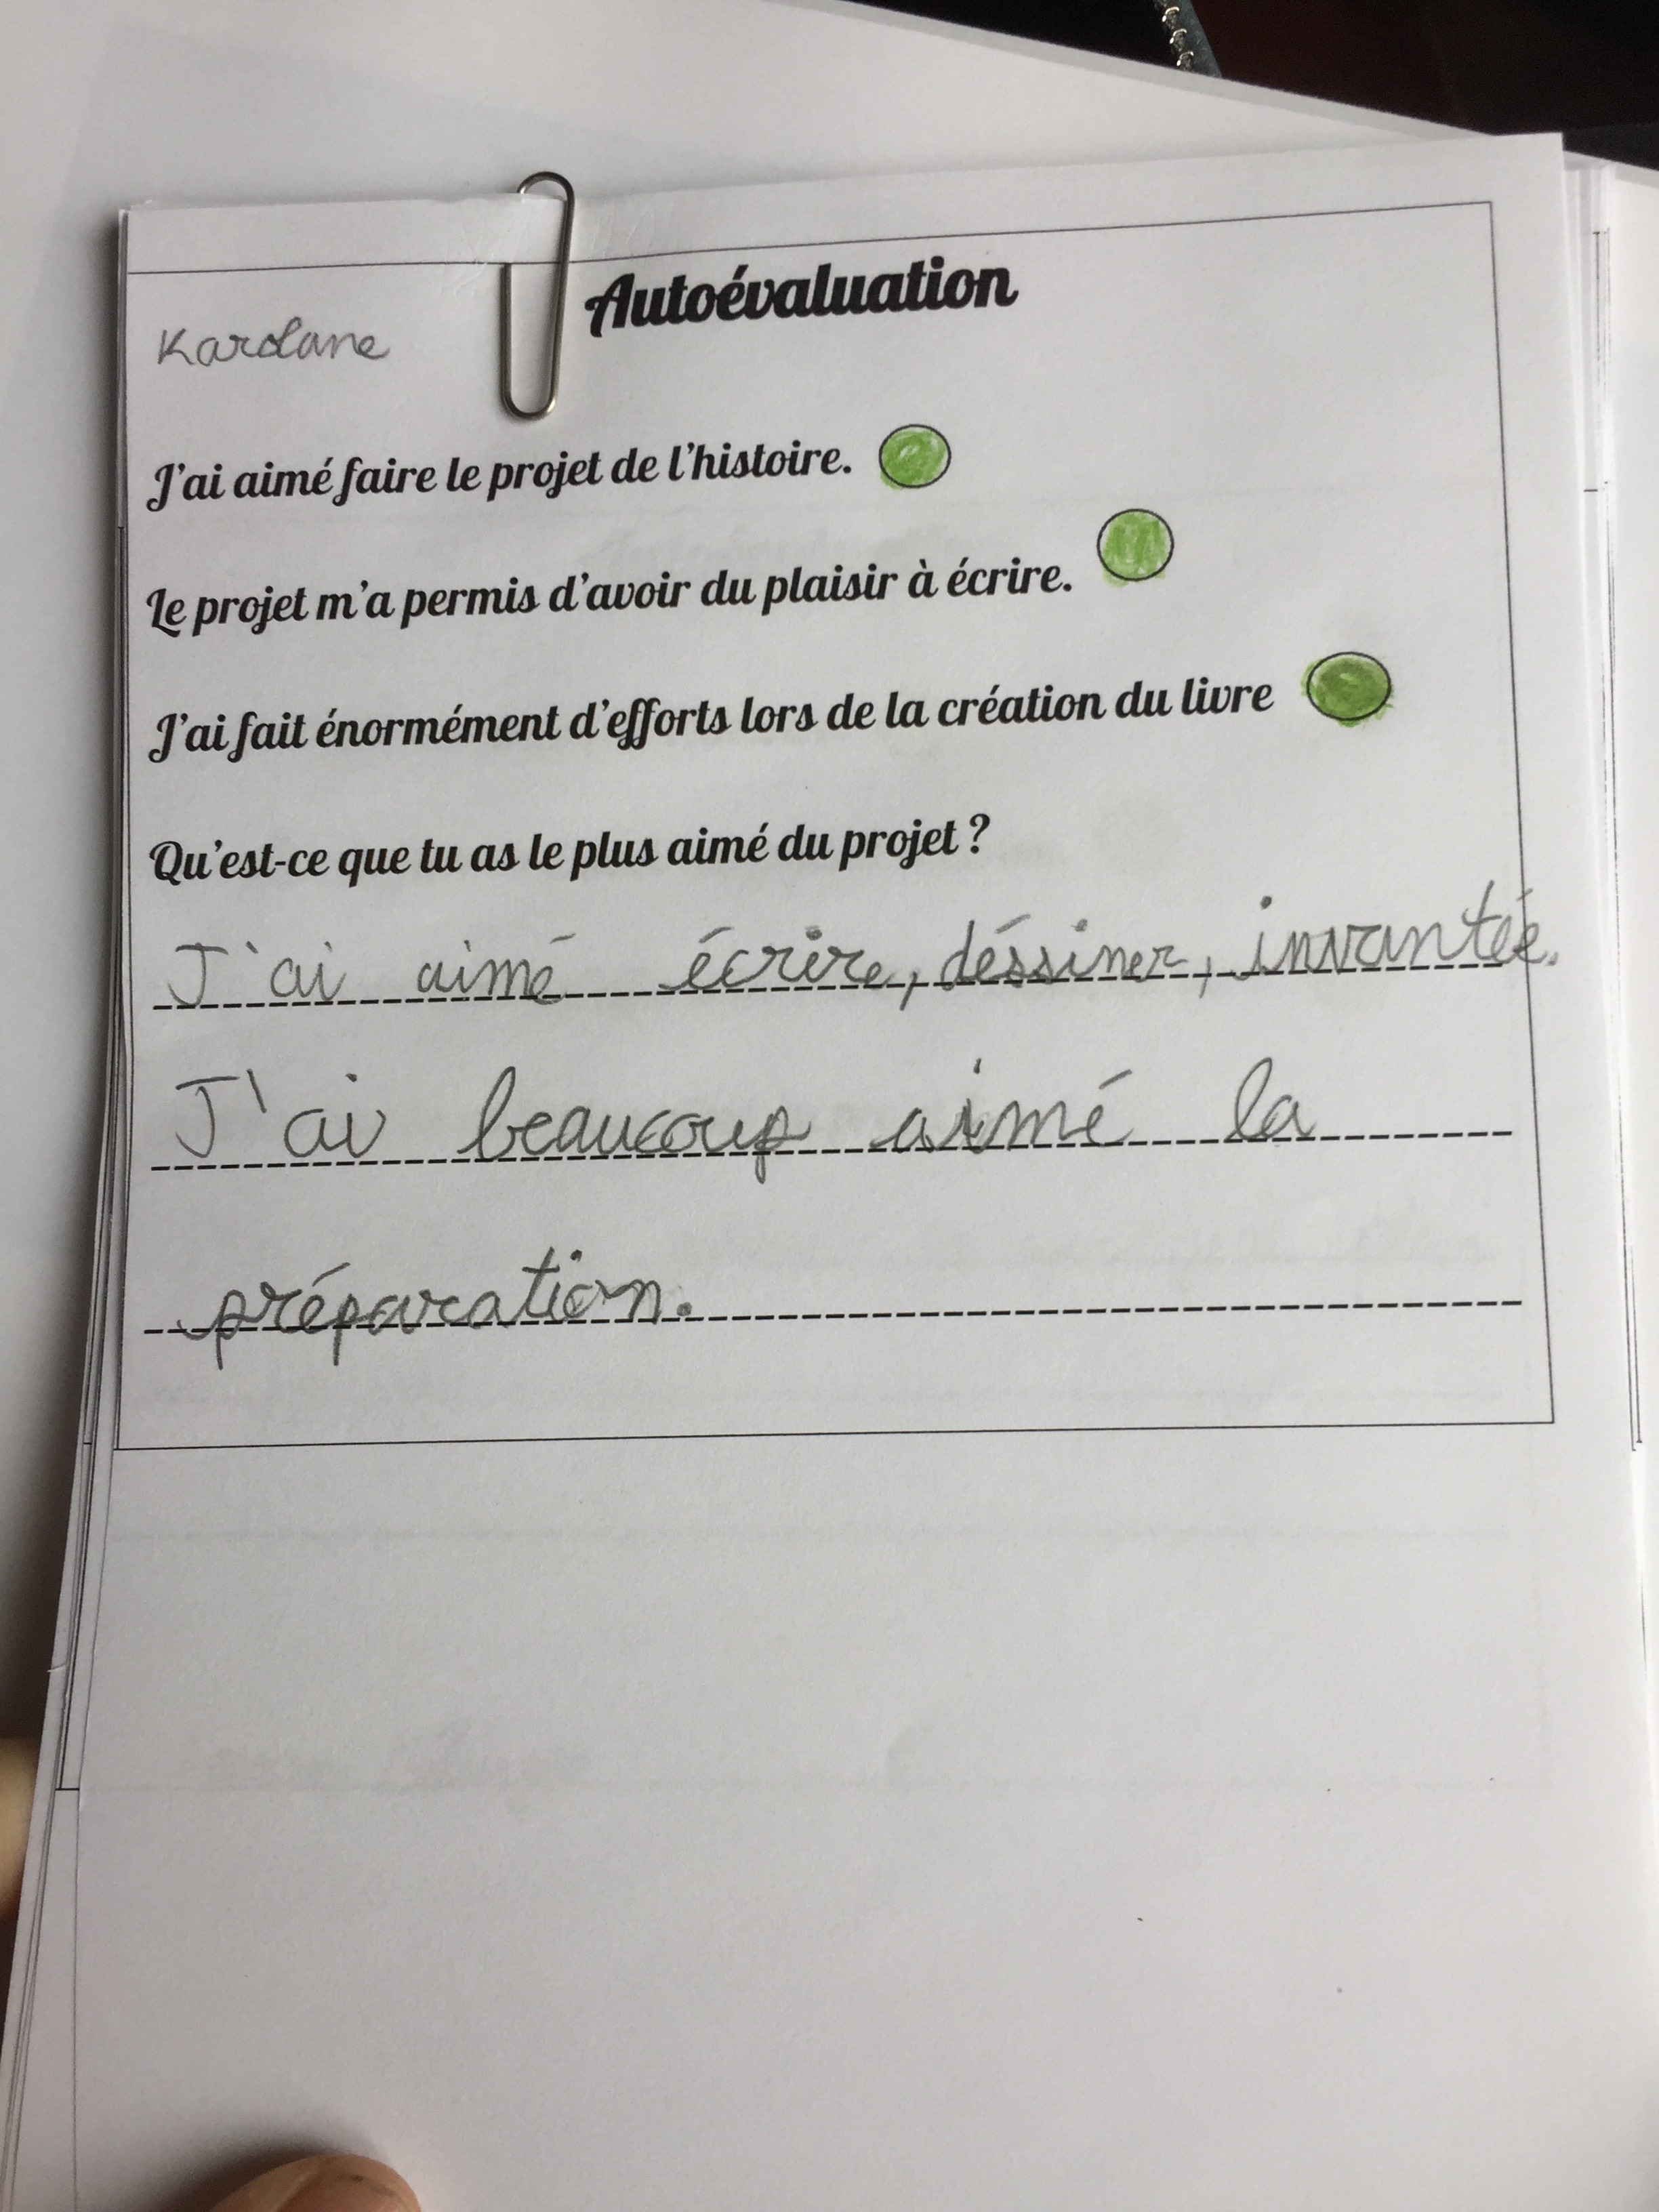 Autoévaluation
Karolane
J'ai aimé faire le projet de l'histoire.
Le projet m'a permis d'avoir du plaisir à écrire.
J'ai fait énormément d'efforts lors de la création du livre
Qu'est-ce que tu as le plus aimé du projet ?
J'ai aimé écrire, déssiner, invantée.
J'ai beaucoup aimé la
préparation.